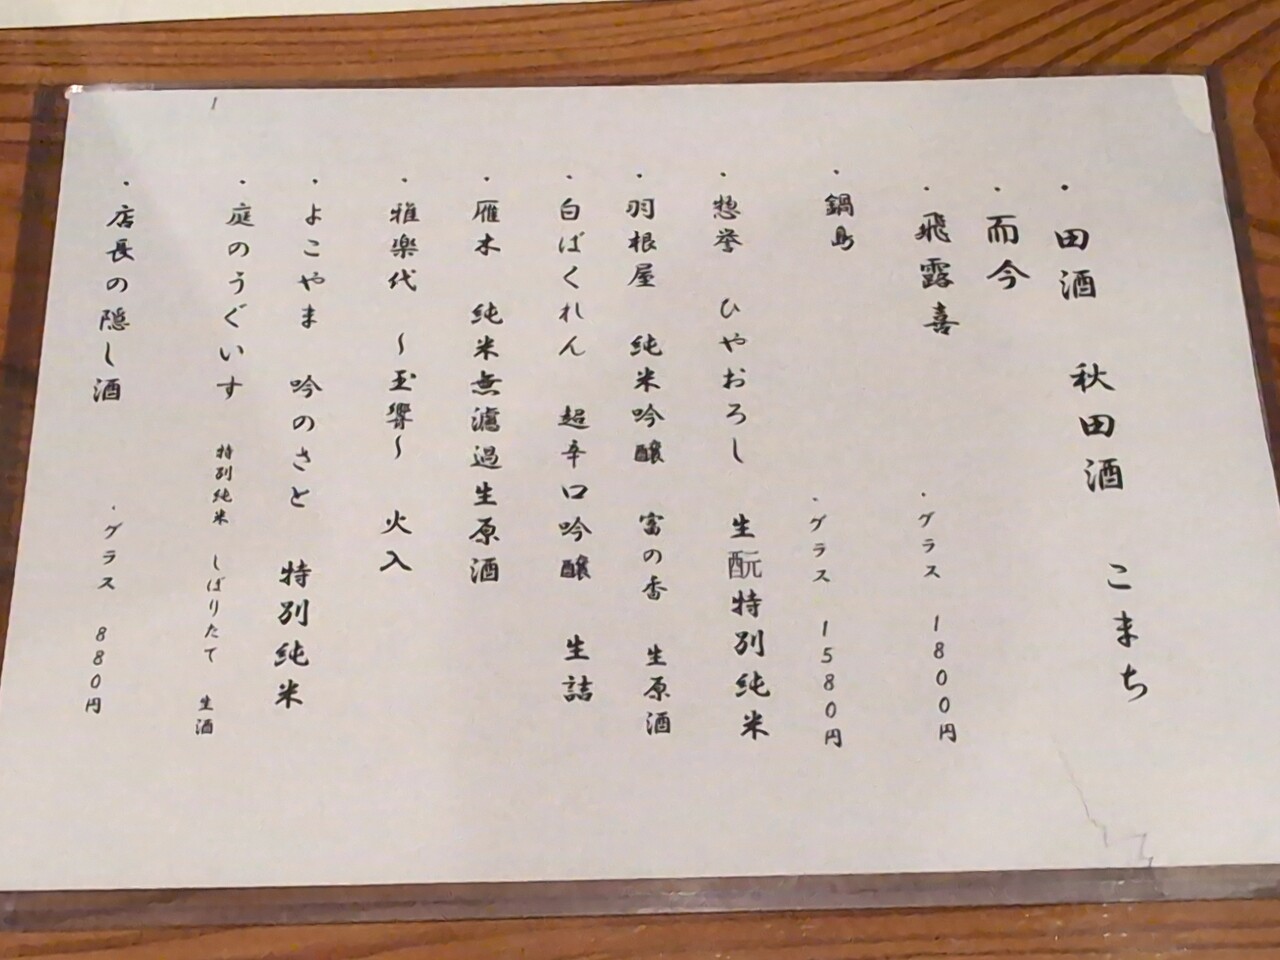 ・田酒　秋田酒　こまち
・而今
・飛露喜　・グラス　1800円
・鍋島　・グラス　1580円
・惣誉　ひやおろし　生酛特別純米
・羽根屋　純米吟醸　富の香　生原酒
・白ばくれん　超辛口吟醸　生詰
・雁木　純米無濾過生原酒
・雅楽代　～玉響～　火入
・よこやま　吟のさと　特別純米
・庭のうぐいす　特別純米　しぼりたて　生酒
・店長の隠し酒　・グラス　880円